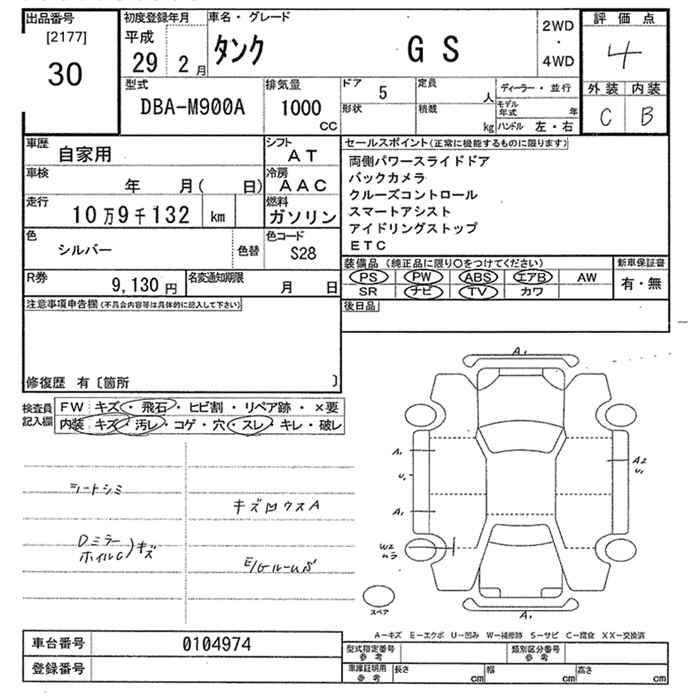 出品番号
[2177]
30
初度登録年月
平成
29 2 月
車名・グレード
タンク GS
2WD
・
4WD
評価点
4
外装 内装
C B
型式
DBA-M900A
排気量
1000
CC
ドア
5
形状
定員
人
積載
kg
ディーラー・並行
モデル年式 年
ハンドル 左・右
車歴
自家用
シフト
AT
車検
年 月( 日)
冷房
AAC
走行
10万9千132 km
燃料
ガソリン
色
シルバー
色替
色コード
S28
R券
9,130 円
名変通知期限
月 日
セールスポイント(正常に機能するものに限ります)
両側パワースライドドア
バックカメラ
クルーズコントロール
スマートアシスト
アイドリングストップ
ETC
装備品(純正品に限り○をつけてください)
PS PW ABS エアB AW
SR ナビ TV カワ
新車保証書
有・無
後日品
注意事項申告欄(不具合内容等は具体的に記入して下さい)
修復歴 有〔箇所 〕
検査員
記入欄
FW キズ・飛石・ヒビ割・リペア跡・×要
内装 キズ・汚レ・コゲ・穴・スレ・キレ・破レ
シートシミ
Dミラー
ホイルC)キズ
キズ凹ウスA
E/Gルーム
A1
A1
U1
A1
W2
A2
U1
A1
スペア
A−キズ E−エクボ U−凹み W−補修跡 S−サビ C−腐食 XX−交換済
車台番号
0104974
登録番号
型式指定番号
参考
類別区分番号
参考
車庫証明用
参考
長さ cm 幅 cm 高さ cm